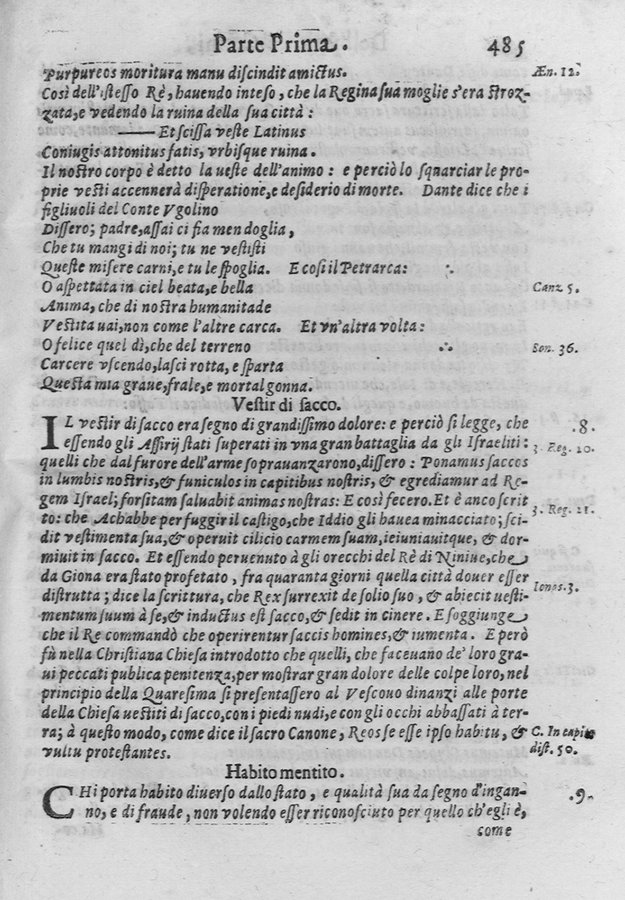 Parte Prima. 485
Purpureos moritura manu discindit amictus. Æn. 12.
Così dell'istesso Rè, hauendo inteso, che la Regina sua moglie s'era stroz-
zata, e vedendo la ruina della sua città:
—— Et scissa veste Latinus
Coniugis attonitus fatis, vrbisque ruina.
Il nostro corpo è detto la ueste dell'animo: e perciò lo squarciar le pro-
prie vesti accennerà disperatione, e desiderio di morte. Dante dice che i
figliuoli del Conte Vgolino
Dissero; padre, assai ci fia men doglia,
Che tu mangi di noi; tu ne vestisti
Queste misere carni, e tu le spoglia. E così il Petrarca:
O aspettata in ciel beata, e bella Canz. 5.
Anima, che di nostra humanitade
Vestita uai, non come l'altre carca. Et vn'altra volta:
O felice quel dì, che del terreno Son. 36.
Carcere vscendo, lasci rotta, e sparta
Questa mia graue, frale, e mortal gonna.
Vestir di sacco.
IL vestir di sacco era segno di grandissimo dolore: e perciò si legge, che .8.
essendo gli Assirij stati superati in vna gran battaglia da gli Israeliti: 3. Reg. 20.
quelli che dal furore dell'arme soprauanzarono, dissero: Ponamus saccos
in lumbis nostris, & funiculos in capitibus nostris, & egrediamur ad Re-
gem Israel; forsitam saluabit animas nostras: E così fecero. Et è anco scrit
to: che Achabbe per fuggir il castigo, che Iddio gli hauea minacciato; sci- 3. Reg. 21.
dit vestimenta sua, & operuit cilicio carmem suam, ieiuniauitque, & dor-
miuit in sacco. Et essendo peruenuto à gli orecchi del Rè di Niniue, che
da Giona era stato profetato, fra quaranta giorni quella città douer esser
distrutta; dice la scrittura, che Rex surrexit de solio suo, & abiecit uesti- Ionos. 3.
mentum suum à se, & inductus est sacco, & sedit in cinere. E soggiunge
che il Re commandò che operirentur saccis homines, & iumenta. E però
fù nella Christiana Chiesa introdotto che quelli, che faceuano de' loro gra-
ui peccati publica penitenza, per mostrar gran dolore delle colpe loro, nel
principio della Quaresima si presentassero al Vescouo dinanzi alle porte
della Chiesa uestiti di sacco, con i piedi nudi, e con gli occhi abbassati à ter-
ra; à questo modo, come dice il sacro Canone, Reos se esse ipso habitu, & C. In capite
vultu protestantes. dist. 50.
Habito mentito.
CHi porta habito diuerso dallo stato, e qualità sua da segno d'ingan- .9.
no, e di fraude, non volendo esser riconosciuto per quello ch'egli è,
come